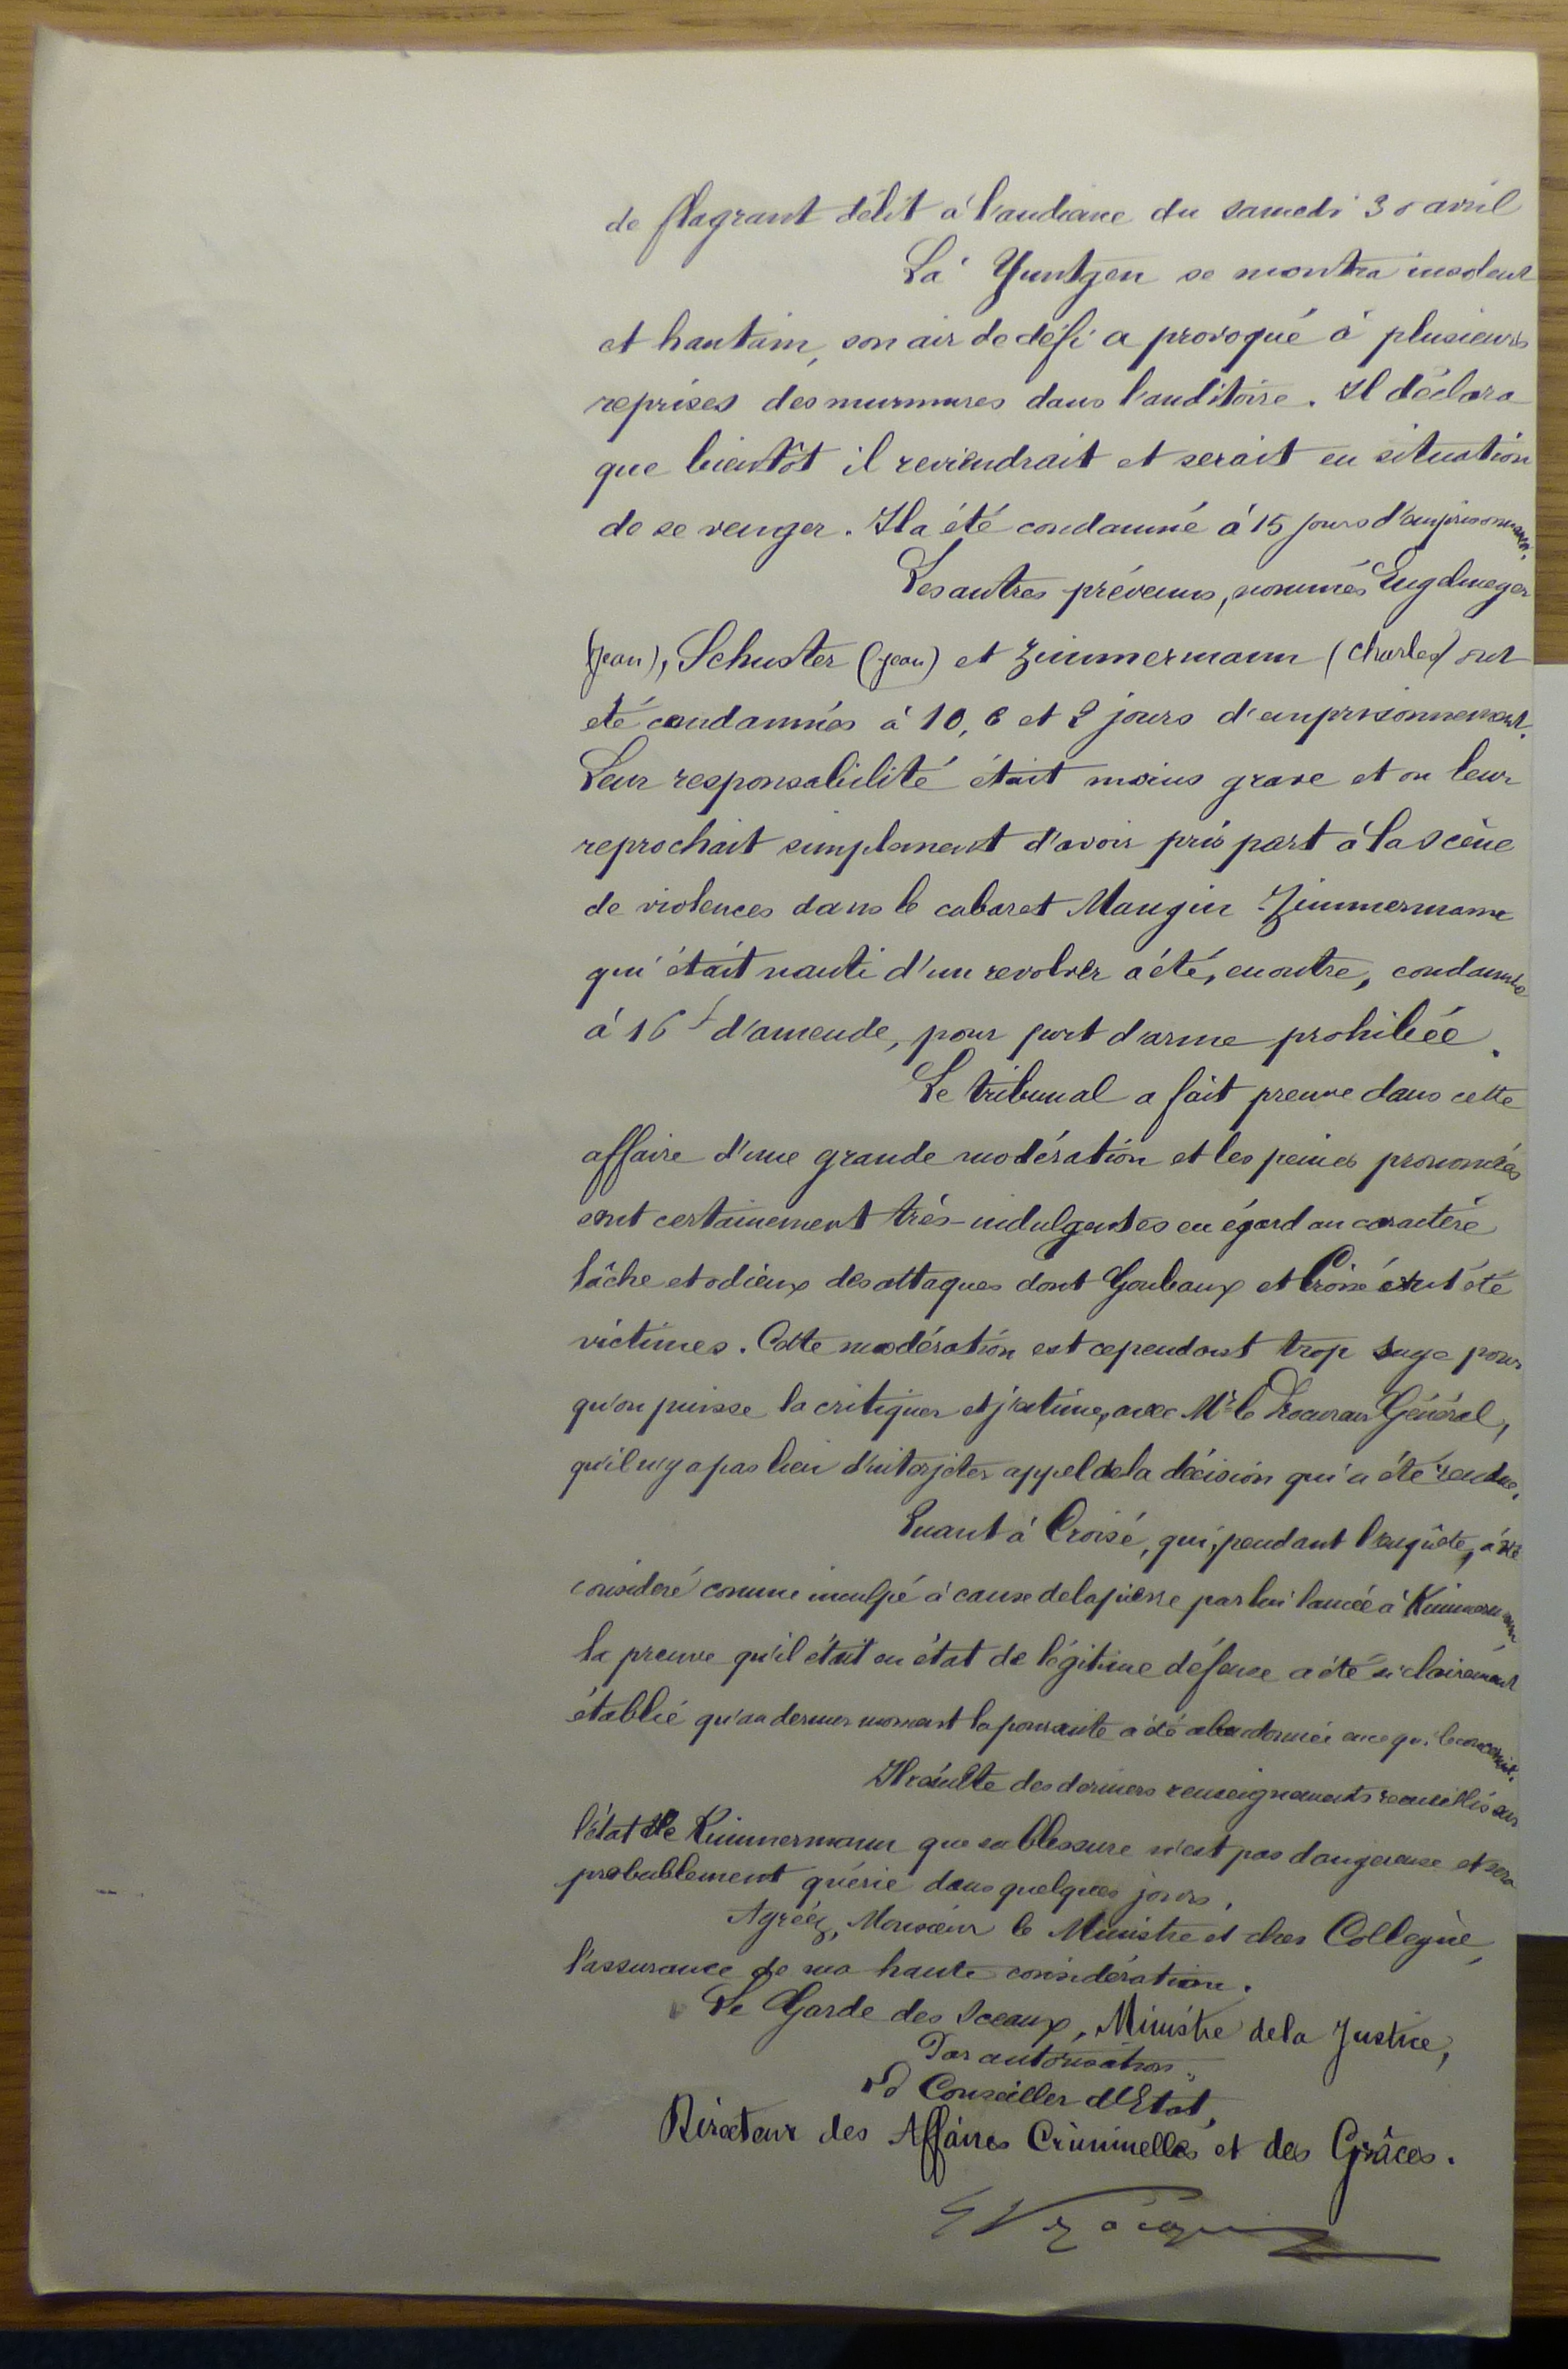 de flagrant délit à l'audience du samedi 30 avril
Là Yuntgen se montra insolent
et hautain, son air de défi a provoqué à plusieurs
reprises des murmures dans l'auditoire. Il déclara
que bientôt il reviendrait et serait en situation
de se venger. Il a été condamné à 15 jours d'emprisonnement.
Les autres prévenus, nommés Engelmeyer
(Jean), Schuster (Jean) et Zimmermann (Charles) ont
été condamnés à 10, 6 et 8 jours d'emprisonnement.
Leur responsabilité était moins grave et on leur
reprochait simplement d'avoir pris part à la scène
de violences dans le cabaret Maugin Zimmermann
qui était nanti d'un revolver a été, en outre, condamné
à 16 f d'amende, pour port d'arme prohibée.
Le tribunal a fait preuve dans cette
affaire d'une grande modération et les peines prononcées
sont certainement très-indulgentes eu égard au caractère
lâche et odieux des attaques dont Goubaux et Croisé ont été
victimes. Cette modération est cependant trop sage pour
qu'on puisse la critiquer et j'estime, avec Mr le Procureur Général,
qu'il n'y a pas lieu d'interjeter appel de la décision qui a été rendue.
Quant à Croisé, qui, pendant l'enquête, a été
considéré comme inculpé à cause de la pierre par lui lancée à Kimmermann,
la preuve qu'il était en état de légitime défense a été si clairement
établie qu'au dernier moment la poursuite a été abandonnée en ce qui le concernait.
Il résulte des derniers renseignements recueillis sur
l'état de Kimmermann que sa blessure n'est pas dangereuse et sera
probablement guérie dans quelques jours.
Agréez, Monsieur le Ministre et cher Collègue,
l'assurance de ma haute considération.
Le Garde des Sceaux, Ministre de la Justice,
Par autorisation,
Le Conseiller d'Etat,
Directeur des Affaires Criminelles et des Grâces.